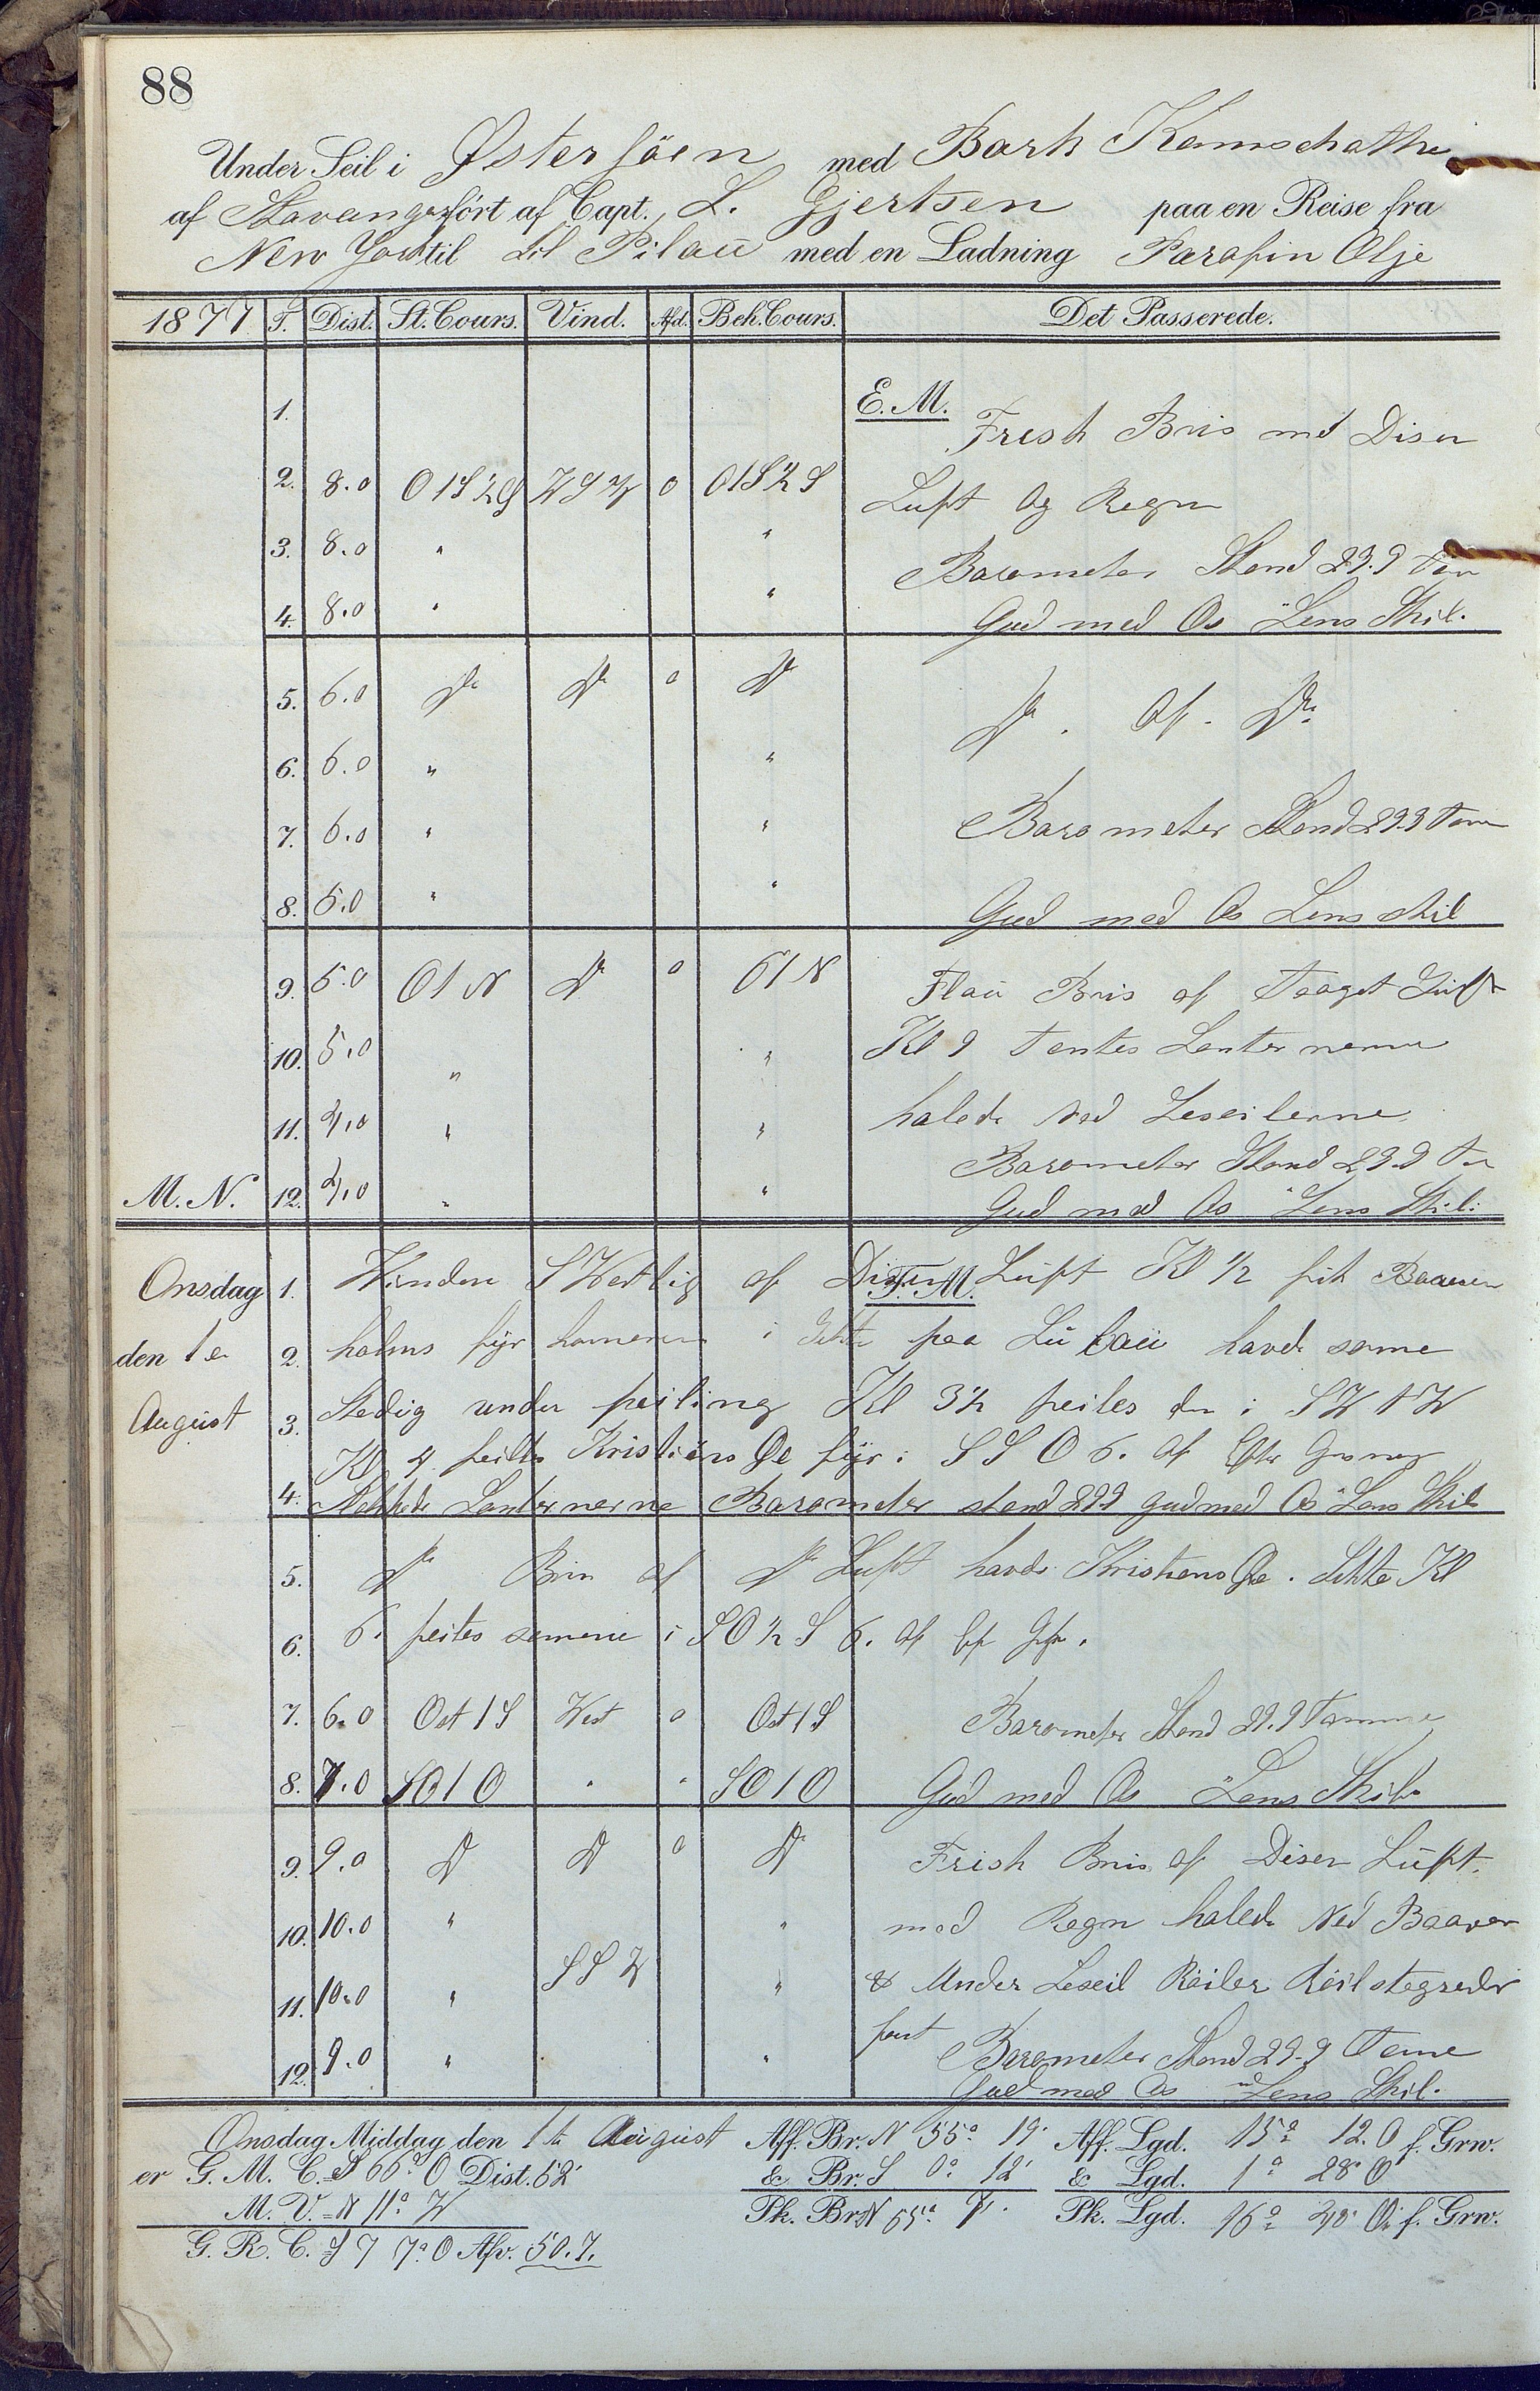 88
Under Seil i Østersöen med Bark Kamschatka
af Stavanger fört af Capt., L. Gjertsen paa en Reise fra
New York til til Pilaü med en Ladning Parafin Olje
1877 T. Dist. St. Cours. Vind. Afd. Beh. Cours. Det Passerede.
1. E. M. Frisk Bris med Diser
2. 8.0 O1S½S WSW 0 O1S½S Luft og Regn
3. 8.0 " " Barometer Stand 29.9
4. 8.0 " " Gud med Os Lens Skib.
5. 6.0 Do Do 0 Do Do. Af. Do
6. 6.0 " "
7. 6.0 " " Barometer Stand 29.9 Tom
8. 5.0 " " Gud med Os Lens skib
9. 5.0 O1N Do 0 O1N Flaü Bris af Taaget Lüft
10. 5.0 " " Kl 9 Tentes Lanternerne
11. 4.0 " " halede Ned Leseilerne
Barometer Stand 29.9
M. N. 12. 4.0 " " Gud med Os Lens Skib.
Onsdag 1. Vinden S Westlig af Diser F. M. Lüft Kl ½ fik
den 1e 2. holms fyr i paa havde same
August 3. Stedig under peiling Kl 3½ peiles den i SW1W
Kl 4 peiltes Kristiens Øe fyr i SSO 6. af
4. Lanternerne Barometer stand 29.9 gud med Os Lens Skib
5. Do Bris af Do Luft havde Kristiens Øe. Kl
6. 6. peiles samme i SO½S 6. af
7. 6.0 Ost1S West 0 Ost1S Barometer Stand 29.9 Tomme
8. 7.0 SO1O " " SO1O Gud med Os Lens Skib
9. 9.0 Do Do 0 Do Frisk Bris af Diser Lüft.
10. 10.0 " " med Regn halede Ned Baaven
11. 10.0 " SSW " & Under Leseil Röiler
12. 9.0 " " fast Barometer Stand 29.9 Tome
Gud med Os Lens Skib.
Onsdag Middag den 1te Aügüst Aff. Br. N 55° 19' Aff. Lgd. 15° 12. O f. Grw.
er G. M. C. S 66° O Dist. 52' & Br. S 0° 12' & Lgd. 1° 28' O
M. V. = N 11° W Pk. Br. N 55° 7'. Pk. Lgd. 16° 40' O. f. Grw.
G. R. C. S 77° O Afv. 50.7.